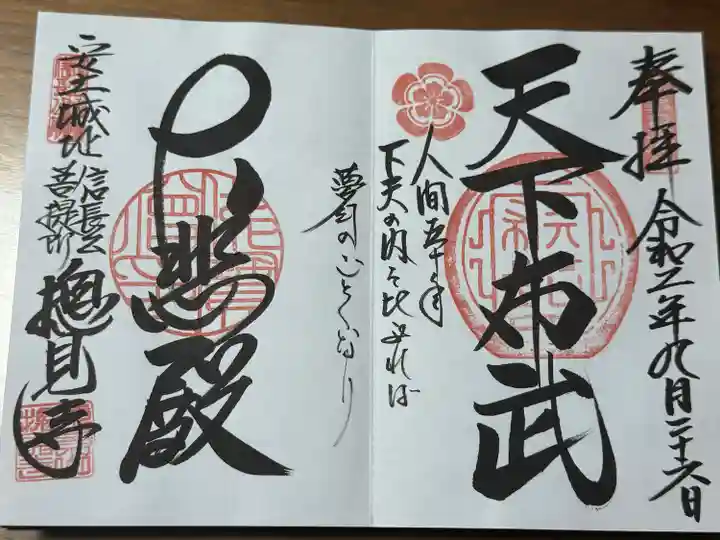 奉拝
令和二年九月二十六日
天下布武
人間五十年
下天の内をくらぶれば
夢幻のごとくなり
大悲殿
安土城址
信長公
菩提所
摠見寺